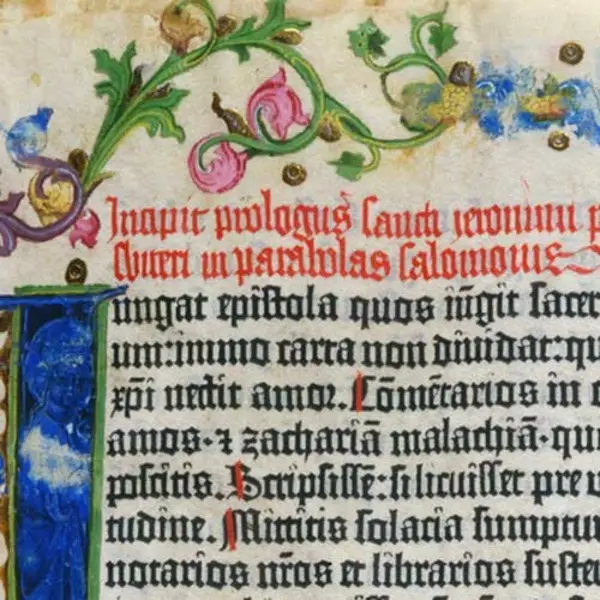 Incipit prologus sancti ieronimi p
sbiteri in parabolas salomonis
ungat epistola quos iūgit sacer
um:immo carta non dividat:qu
xp̄i nectit amor. Cōmētarios in o
amos· ⁊ zachariā malachiā· quo
poscitis. Scripsissē: si licuisset pre v
tudine. Mittitis solacia sumptuu
notarios nr̄os et librarios suste